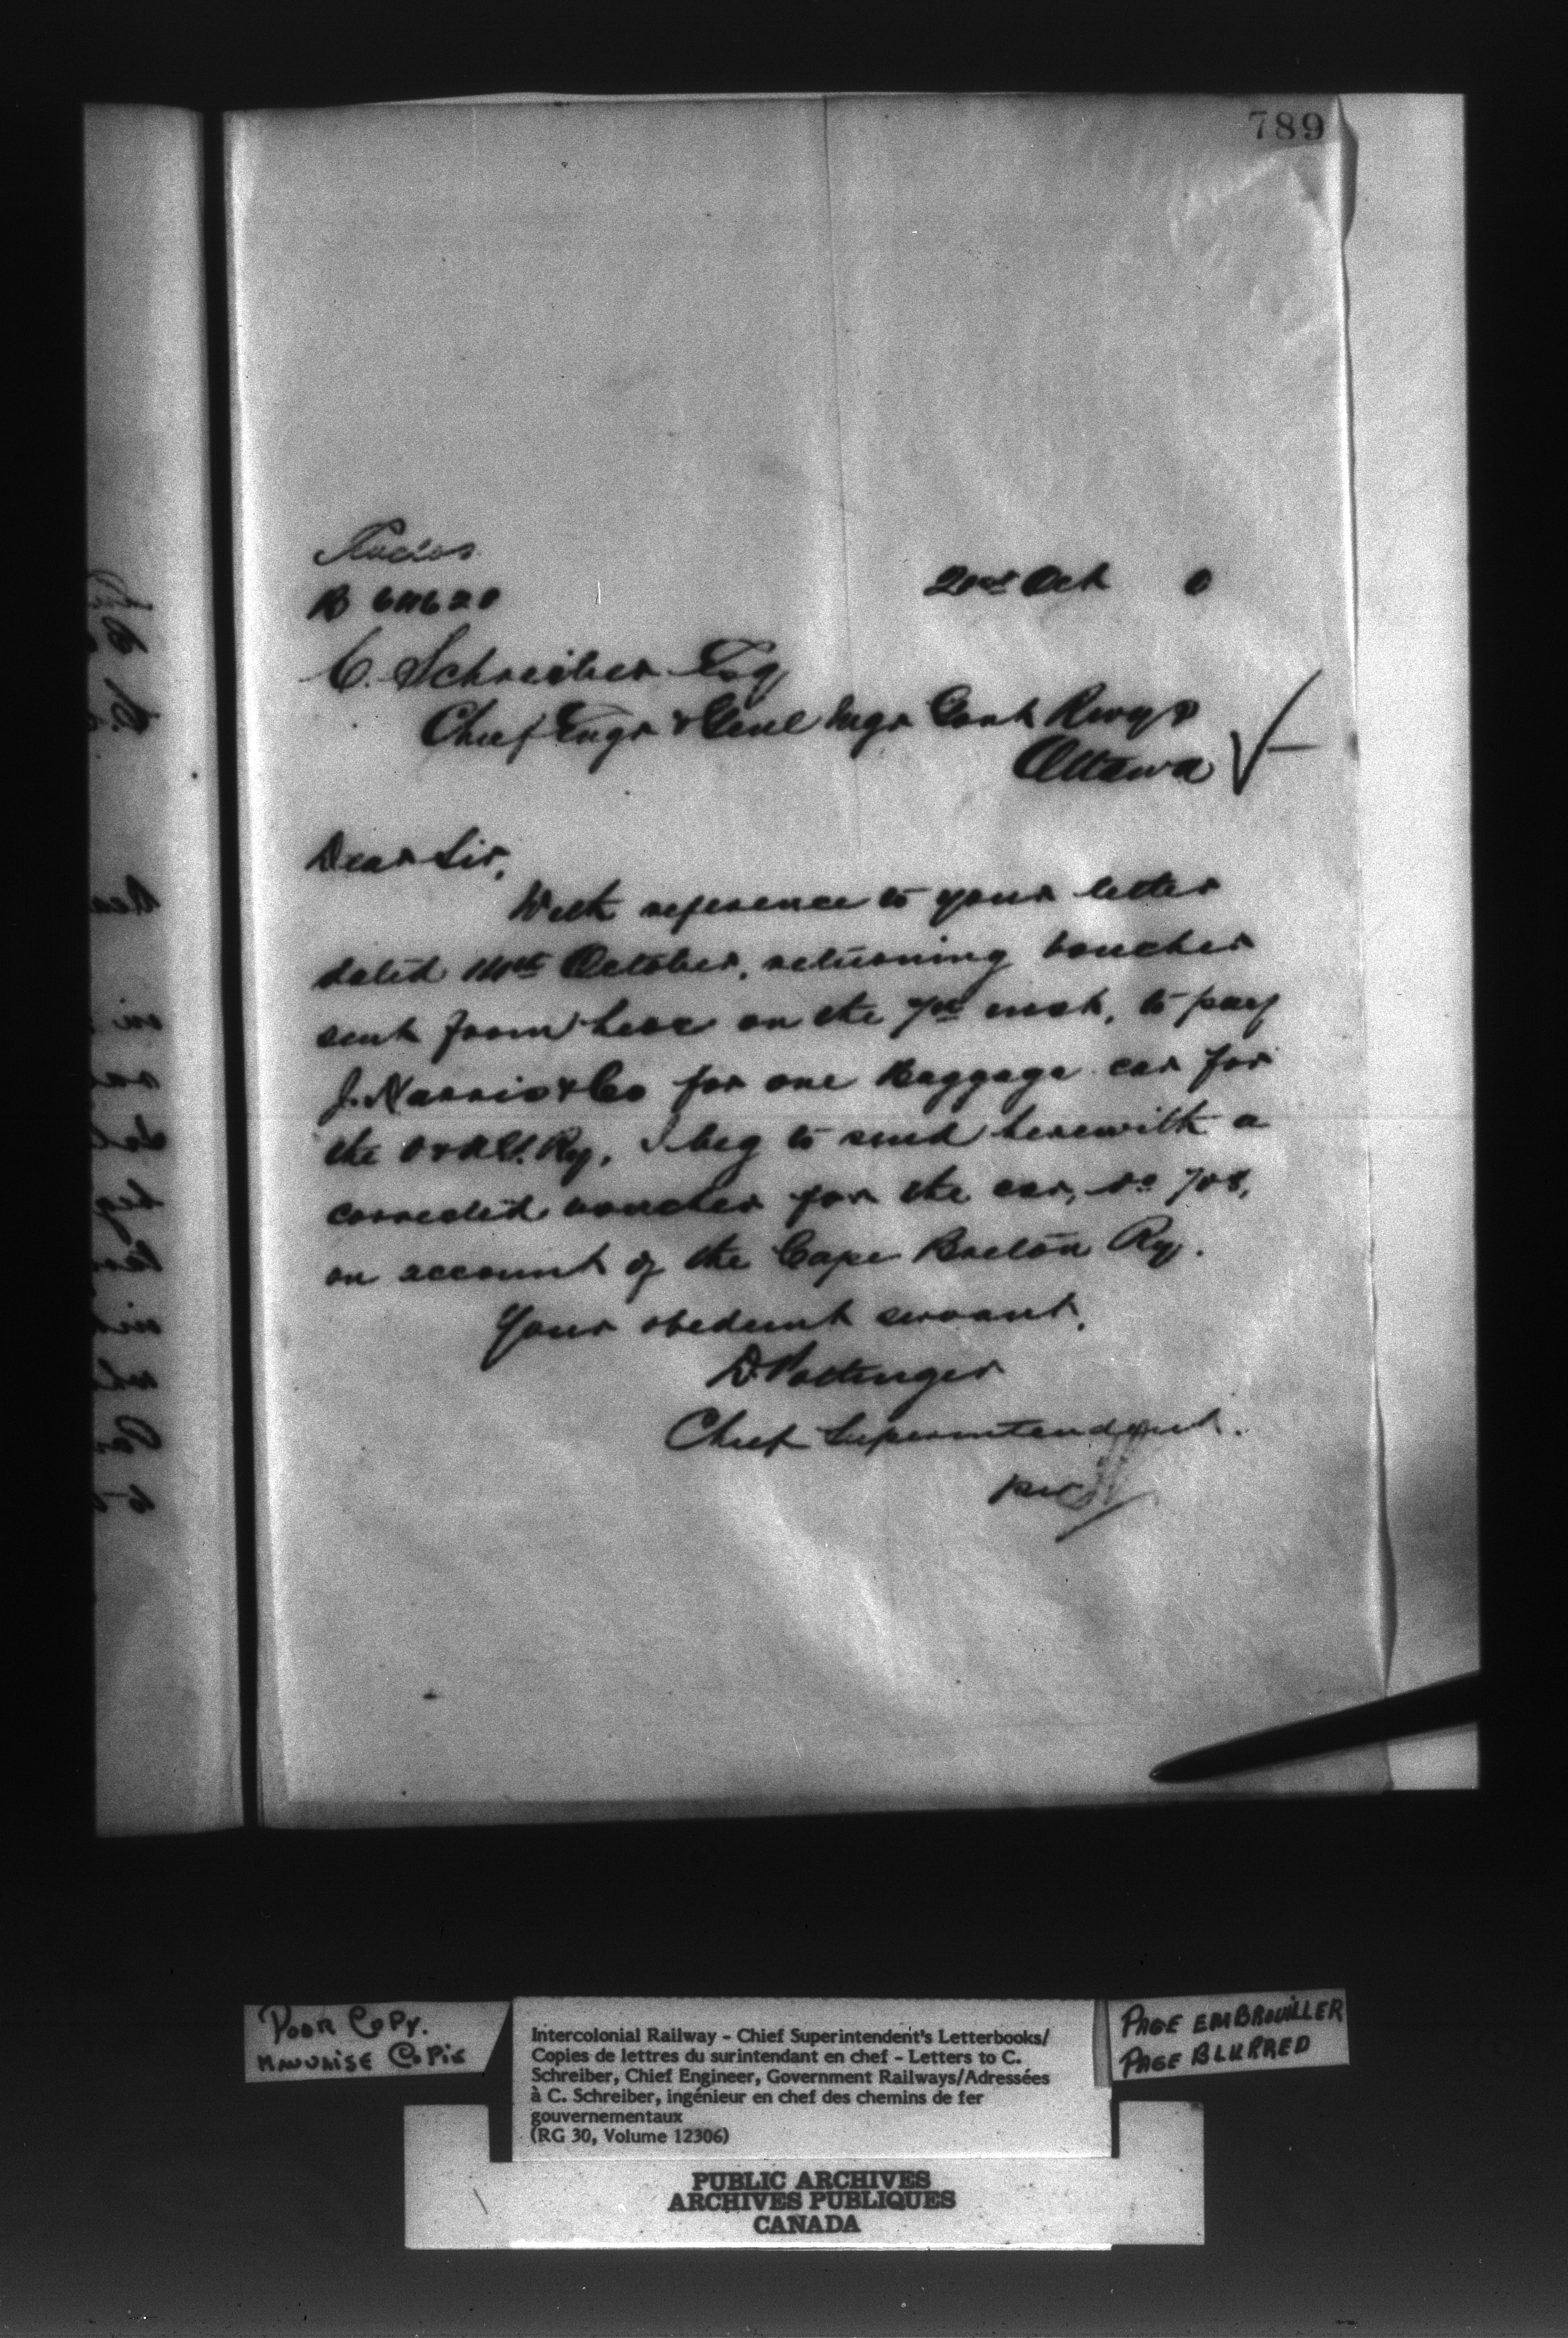 789
B 60620
Oct 0
C. Schreiber Esq
Chief Engr & Genl Mgr Govt Rwys
Ottawa
Dear Sir,
With reference to your letter
dated October, returning voucher
sent from here on the 7th inst, to pay
J. Harris & Co for one Baggage car for
the Ry, I beg to send herewith a
corrected voucher for the car, no 708,
on account of the Cape Breton Ry.
Your obedient servant,
D Pottinger
Chief Superintendent.
per
POOR COPY.
MAUVAISE COPIE
Intercolonial Railway - Chief Superintendent's Letterbooks/
Copies de lettres du surintendant en chef - Letters to C.
Schreiber, Chief Engineer, Government Railways/Adressées
à C. Schreiber, ingénieur en chef des chemins de fer
gouvernementaux
(RG 30, Volume 12306)
PAGE EMBROUILLER
PAGE BLURRED
PUBLIC ARCHIVES
ARCHIVES PUBLIQUES
CANADA